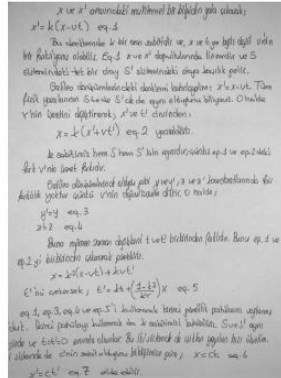 x ve x' arasındaki muhtemel bir bağıntı yola çıkarak;
x' = k(x-vt) eq.1
Bu denklemde k bir oran sabitidir ve, x ve t ye bağlı değil v'nin
bir fonksiyonu olabilir. Eq.1 x ve x' doğrultularında lineerdir ve S
sistemindeki tek bir olay S' sistemindeki olaya karşılık gelir.
Galileo dönüşümündeki denklemi hatırlayalım: x'=x-vt. Tüm
fizik yasalarının S ve de S' de de aynı olduğunu biliyoruz. O halde
v'nin işaretini değiştirerek, x' ve t' cinsinden:
x = k(x'+vt') eq.2 yazılabilir.
k sabitimiz hem S hem S' için aynıdır, çünkü eq.1 ve eq.2 deki
fark v'nin işareti farkıdır.
Galileo dönüşümünde olduğu gibi y ve y', z ve z' koordinatlarında bir
farklılık yoktur çünkü v'nin doğrultusuna diktir. O halde;
y'=y eq.3
z'=z eq.4
Buna rağmen zaman değişkeni t ve t' birbirinden farklıdır. Bunu eq.1 ve
eq.2 yi kullanarak görebiliriz.
x = k²(x-vt) + kvt'
t' nü çekersek; t' = kt + (1-k²/kv)x eq.5
eq.1, eq.3, eq.4 ve eq.5'i kullanarak birinci görelilik postülasını
İkinci postülayı kullanarak da k sabitimizi bulabiliriz. S ve S' aynı
ve t=t'=0 anında olsunlar. Bu iki sistemde de ışık
sistemde de c'nin sabit olduğunu bildiğimize göre, x=ct eq.6
x'=ct' eq.7 elde edilir.